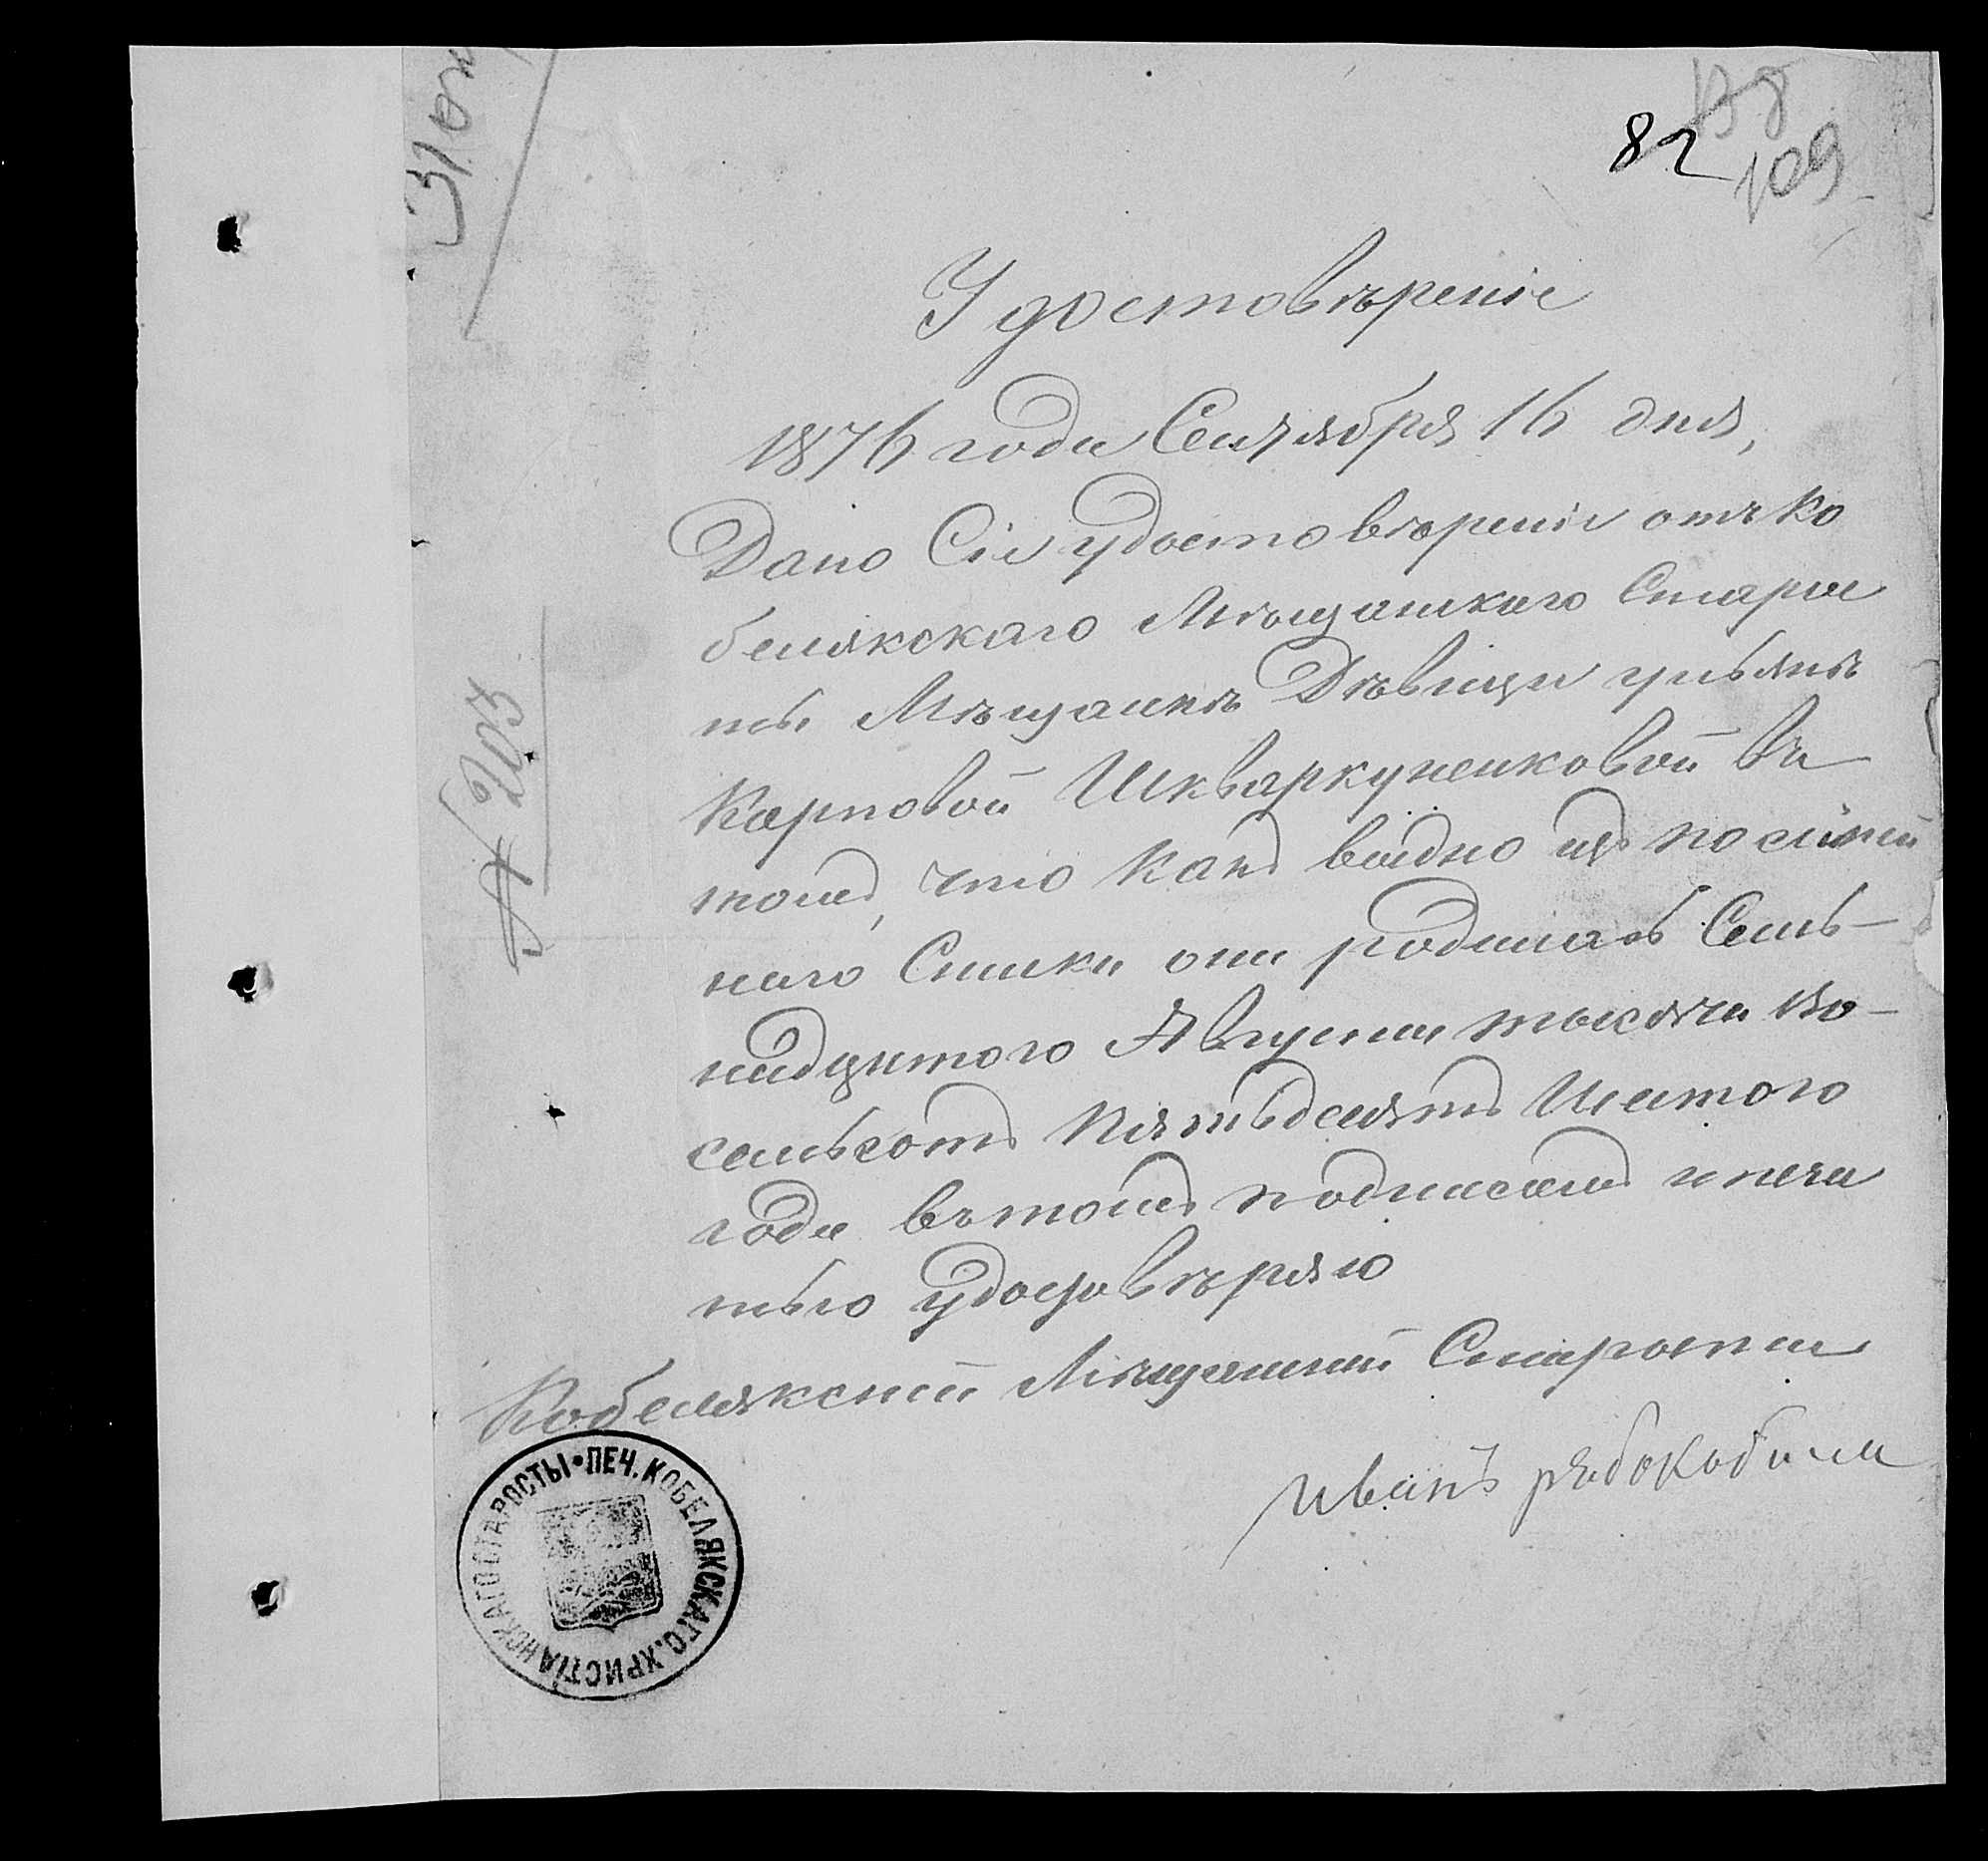 82
109
Удостовѣреніе
1876 года Сентября 16 дня,
Дано Сіе удостовѣреніе отъ Ко
белякскаго Мѣщанскаго Старос
ты Мѣщанкѣ Дѣвицы Ульянѣ
Карповой Шкваркуненковой въ
томъ, что какъ видно изъ посімей
наго Списка она родилась Семь-
надцатого Августа тысяча во-
семьсотъ пятьдесятъ Шестого
года въ томъ подписомъ и печа
тью удостовѣряю
Кобелякскій Мѣщанскій Староста
Иванъ рябокобила
№ 203
ПЕЧ. КОБЕЛЯКСКАГО. ХРИСТІАНСКАГО СТАРОСТЫ